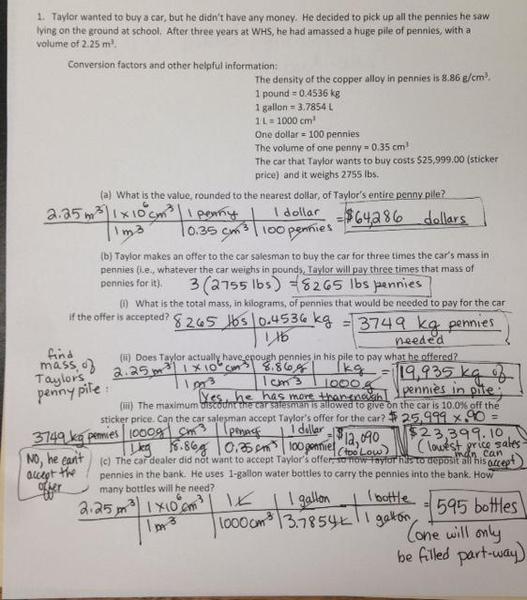 1. Taylor wanted to buy a car, but he didn't have any money. He decided to pick up all the pennies he saw
lying on the ground at school. After three years at WHS, he had amassed a huge pile of pennies, with a
volume of 2.25 m³.
Conversion factors and other helpful information:
The density of the copper alloy in pennies is 8.86 g/cm³.
1 pound = 0.4536 kg
1 gallon = 3.7854 L
1 L = 1000 cm³
One dollar = 100 pennies
The volume of one penny = 0.35 cm³
The car that Taylor wants to buy costs $25,999.00 (sticker
price) and it weighs 2755 lbs.
(a) What is the value, rounded to the nearest dollar, of Taylor's entire penny pile?
2.25 m³ | 1 x 10⁶ cm³ | 1 penny | 1 dollar = $64,286 dollars
1 m³ | 0.35 cm³ | 100 pennies
(b) Taylor makes an offer to the car salesman to buy the car for three times the car's mass in
pennies (i.e., whatever the car weighs in pounds, Taylor will pay three times that mass of
pennies for it). 3 (2755 lbs) = 8265 lbs pennies
(i) What is the total mass, in kilograms, of pennies that would be needed to pay for the car
if the offer is accepted? 8265 lbs | 0.4536 kg = 3749 kg pennies
1 lb needed
find
mass of
Taylors
penny pile:
(ii) Does Taylor actually have enough pennies in his pile to pay what he offered?
2.25 m³ | 1 x 10⁶ cm³ | 8.86 g | 1 kg = 19,935 kg of
1 m³ | 1 cm³ | 1000 g pennies in pile
Yes, he has more than enough!
(iii) The maximum discount the car salesman is allowed to give on the car is 10.0% off the
sticker price. Can the car salesman accept Taylor's offer for the car? $25,999 x .90 =
3749 kg pennies | 1000 g | cm³ | 1 penny | 1 dollar = $12,090 $23,399.10
1 kg | 8.86 g | 0.35 cm³ | 100 pennies (too Low) (lowest price sales-
man can
accept)
NO, he can't
accept the
offer
(c) The car dealer did not want to accept Taylor's offer, so now Taylor has to deposit all his
pennies in the bank. He uses 1-gallon water bottles to carry the pennies into the bank. How
many bottles will he need?
2.25 m³ | 1 x 10⁶ cm³ | 1 L | 1 gallon | 1 bottle = 595 bottles
1 m³ | 1000 cm³ | 3.7854 L | 1 gallon
(one will only
be filled part-way)